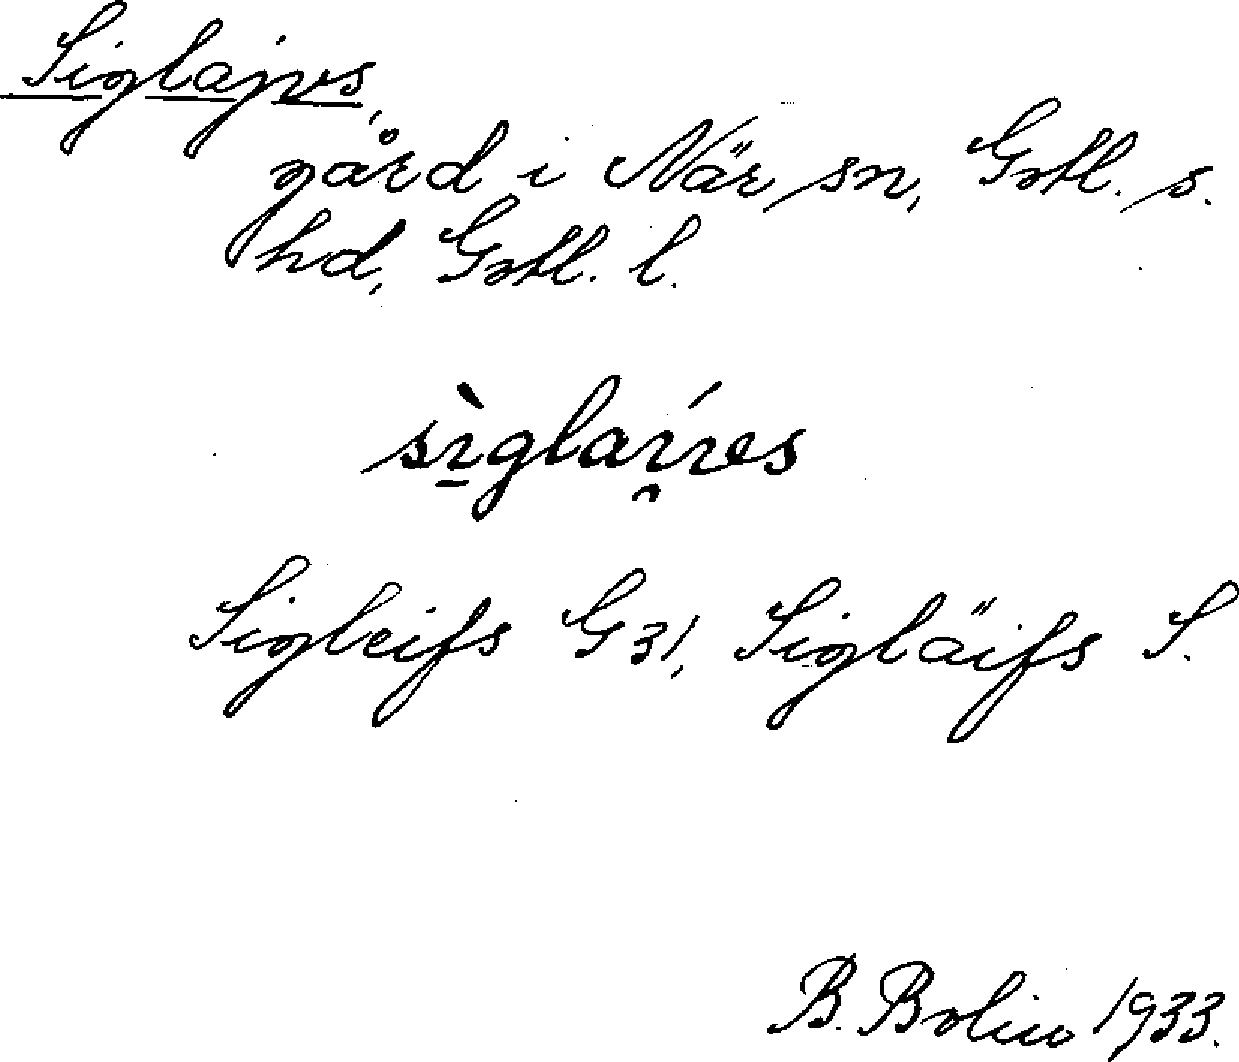 Siglajvs,
gård i När sn, Gotl. s.
hd, Gotl. l.
Sigleifs G31, Sigläifs S.
B. Bolin 1933.